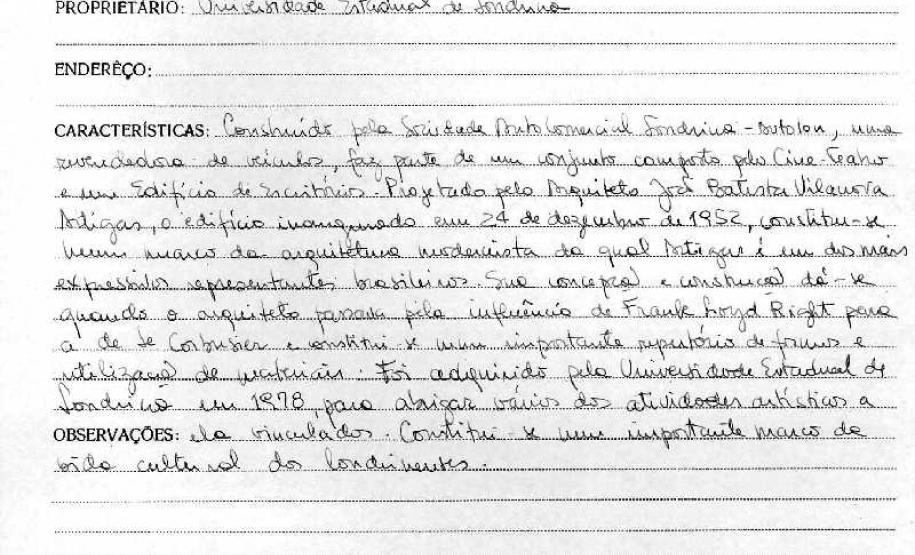 PROPRIETÁRIO: Universidade Estadual de Londrina
ENDERÊÇO:
CARACTERÍSTICAS: Construído pela Sociedade Auto Comercial Londrina - Autolon, uma
revendedora de veículos, faz parte de um conjunto composto pelo Cine-Teatro
e um Edifício de Escritórios. Projetado pelo Arquiteto João Batista Vilanova
Artigas, o edifício inaugurado em 24 de dezembro de 1952, constitui-se
num marco da arquitetura modernista da qual Artigas é um dos mais
expressivos representantes brasileiros. Sua concepção e construção dá-se
quando o arquiteto passava pela influência de Frank Loyd Right para
a de Le Corbusier e constitui-se num importante repertório de formas e
utilização de materiais. Foi adquirido pela Universidade Estadual de
Londrina em 1978, para abrigar vários das atividades artísticas a
OBSERVAÇÕES: ela vinculados. Constitui-se num importante marco da
vida cultural dos londrinenses.